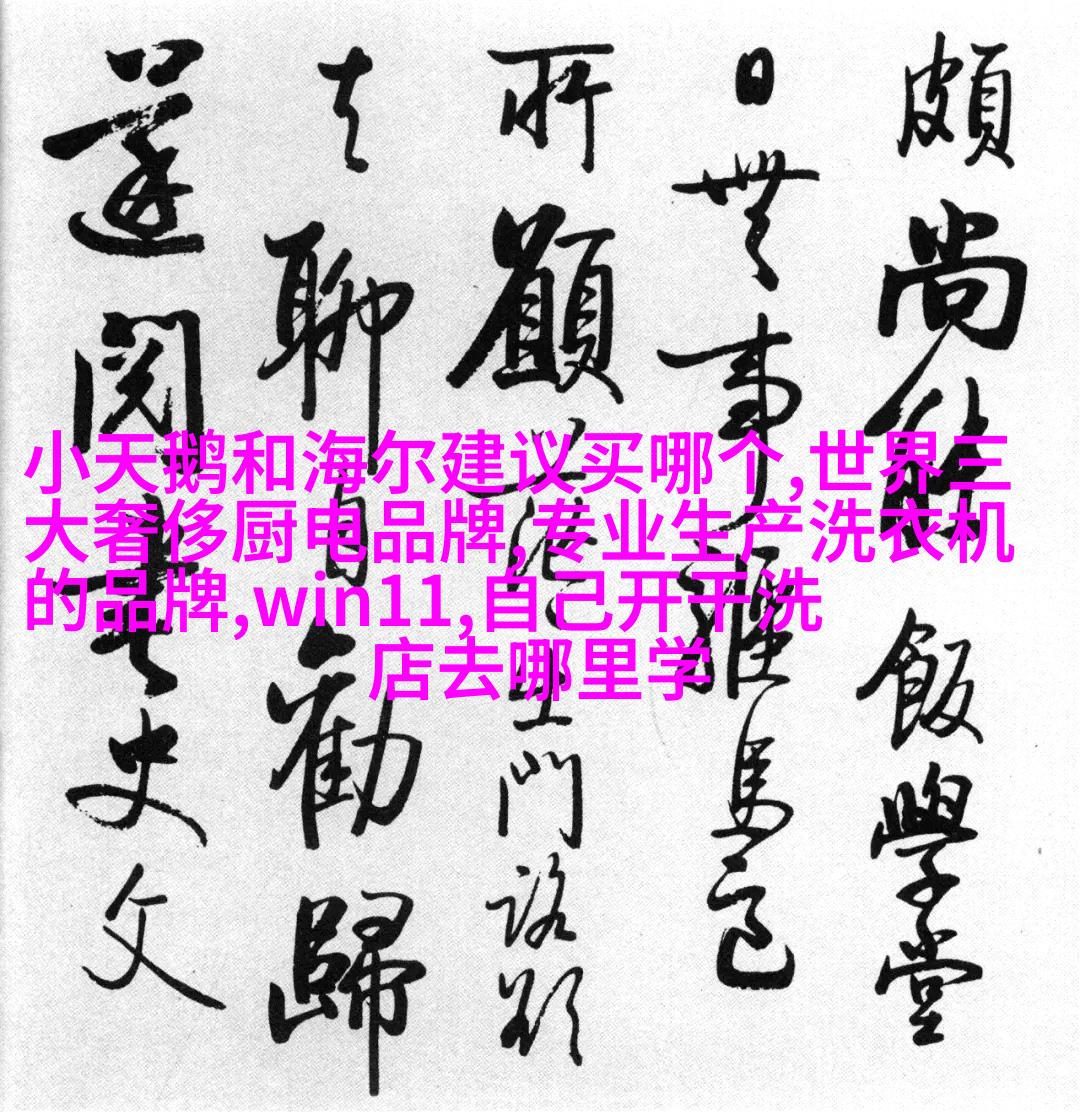 小天鹅和海尔建议买哪个,世界三
大奢侈厨电品牌,专业生产洗衣机
的品牌,win11,自己开干洗
店去哪里学
頗尚能飯學堂
日無事
所顧
聊自勸歸
閱書史文